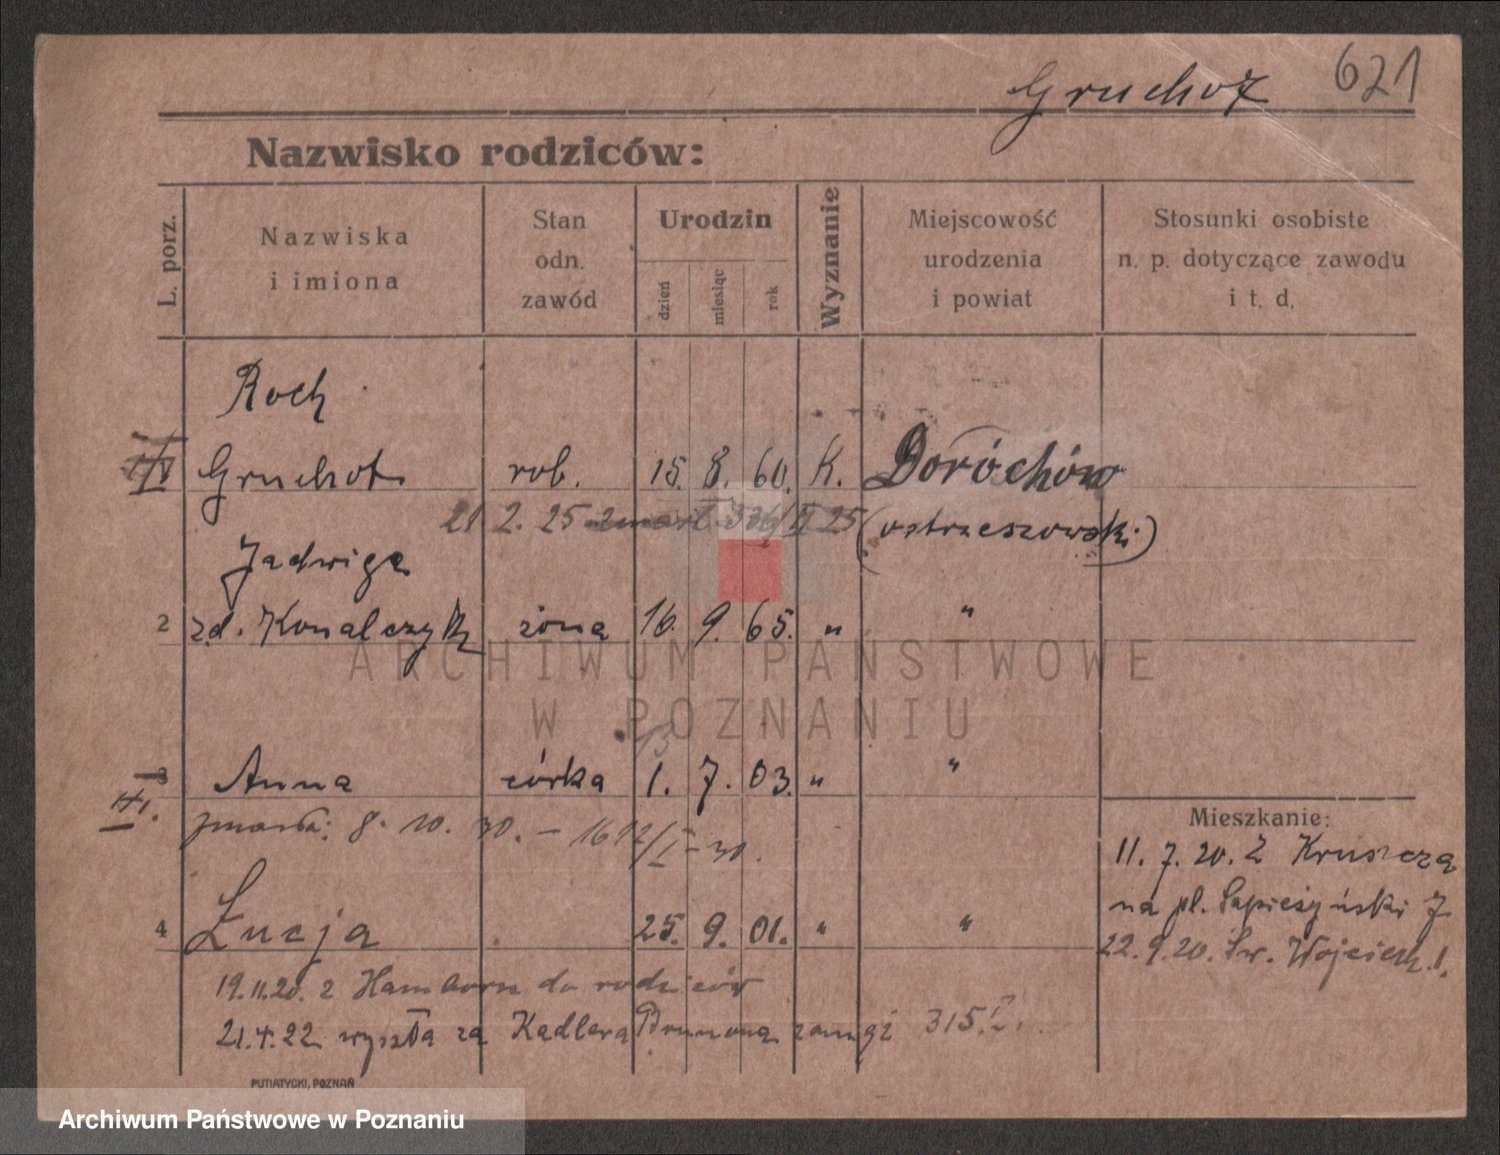 621
Gruchot
Nazwisko rodziców:
L. porz.
Nazwiska
i imiona
Stan
odn.
zawód
Urodzin
dzień
miesiąc
rok
Wyznanie
Miejscowość
urodzenia
i powiat
Stosunki osobiste
n. p. dotyczące zawodu
i t. d.
Roch
Gruchot rob. 15. 8. 60. K. Doróchów
21 2. 25 zmarł 25 (ostrzeszowski)
Jadwiga
2 zd. Kowalczyk żona 16. 9. 65. „ "
13
3 Anna córka 1. 7. 03. „ "
zmarła: 8. 10. 30. – 1612/I – 30.
4 Łucja 25. 9. 01. " "
19.11.20. z Hamborn do rodziców
21.4.22 wyszła za Kadlera Brunona zamąż 315.
Mieszkanie:
11. 7. 20. z Kruszcza
na pl. Sapieżyński 7
22.9.20. Św. Wojciech 1.
PUTIATYCKI, POZNAŃ
ARCHIWUM PAŃSTWOWE
W POZNANIU
Archiwum Państwowe w Poznaniu